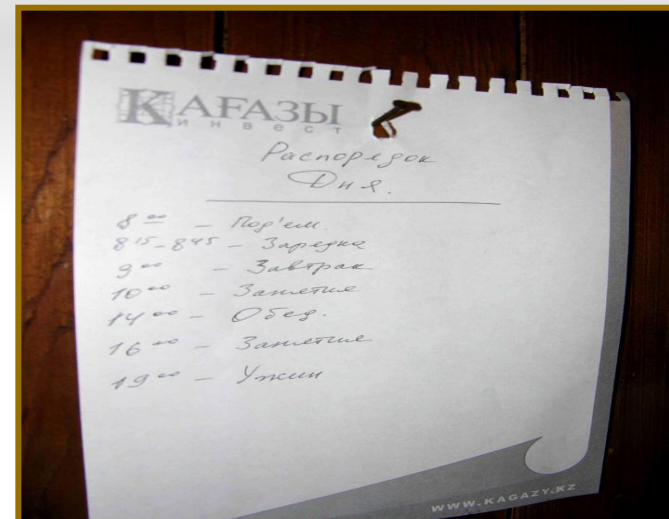 КАҒАЗЫ
инвест
Распорядок
Дня.
8 00 – Под'ем.
8 15 – 8 45 – Зарядка
9 00 – Завтрак
10 00 – Занятие
14 00 – Обед.
16 00 – Занятие
19 00 – Ужин
WWW.KAGAZY.KZ